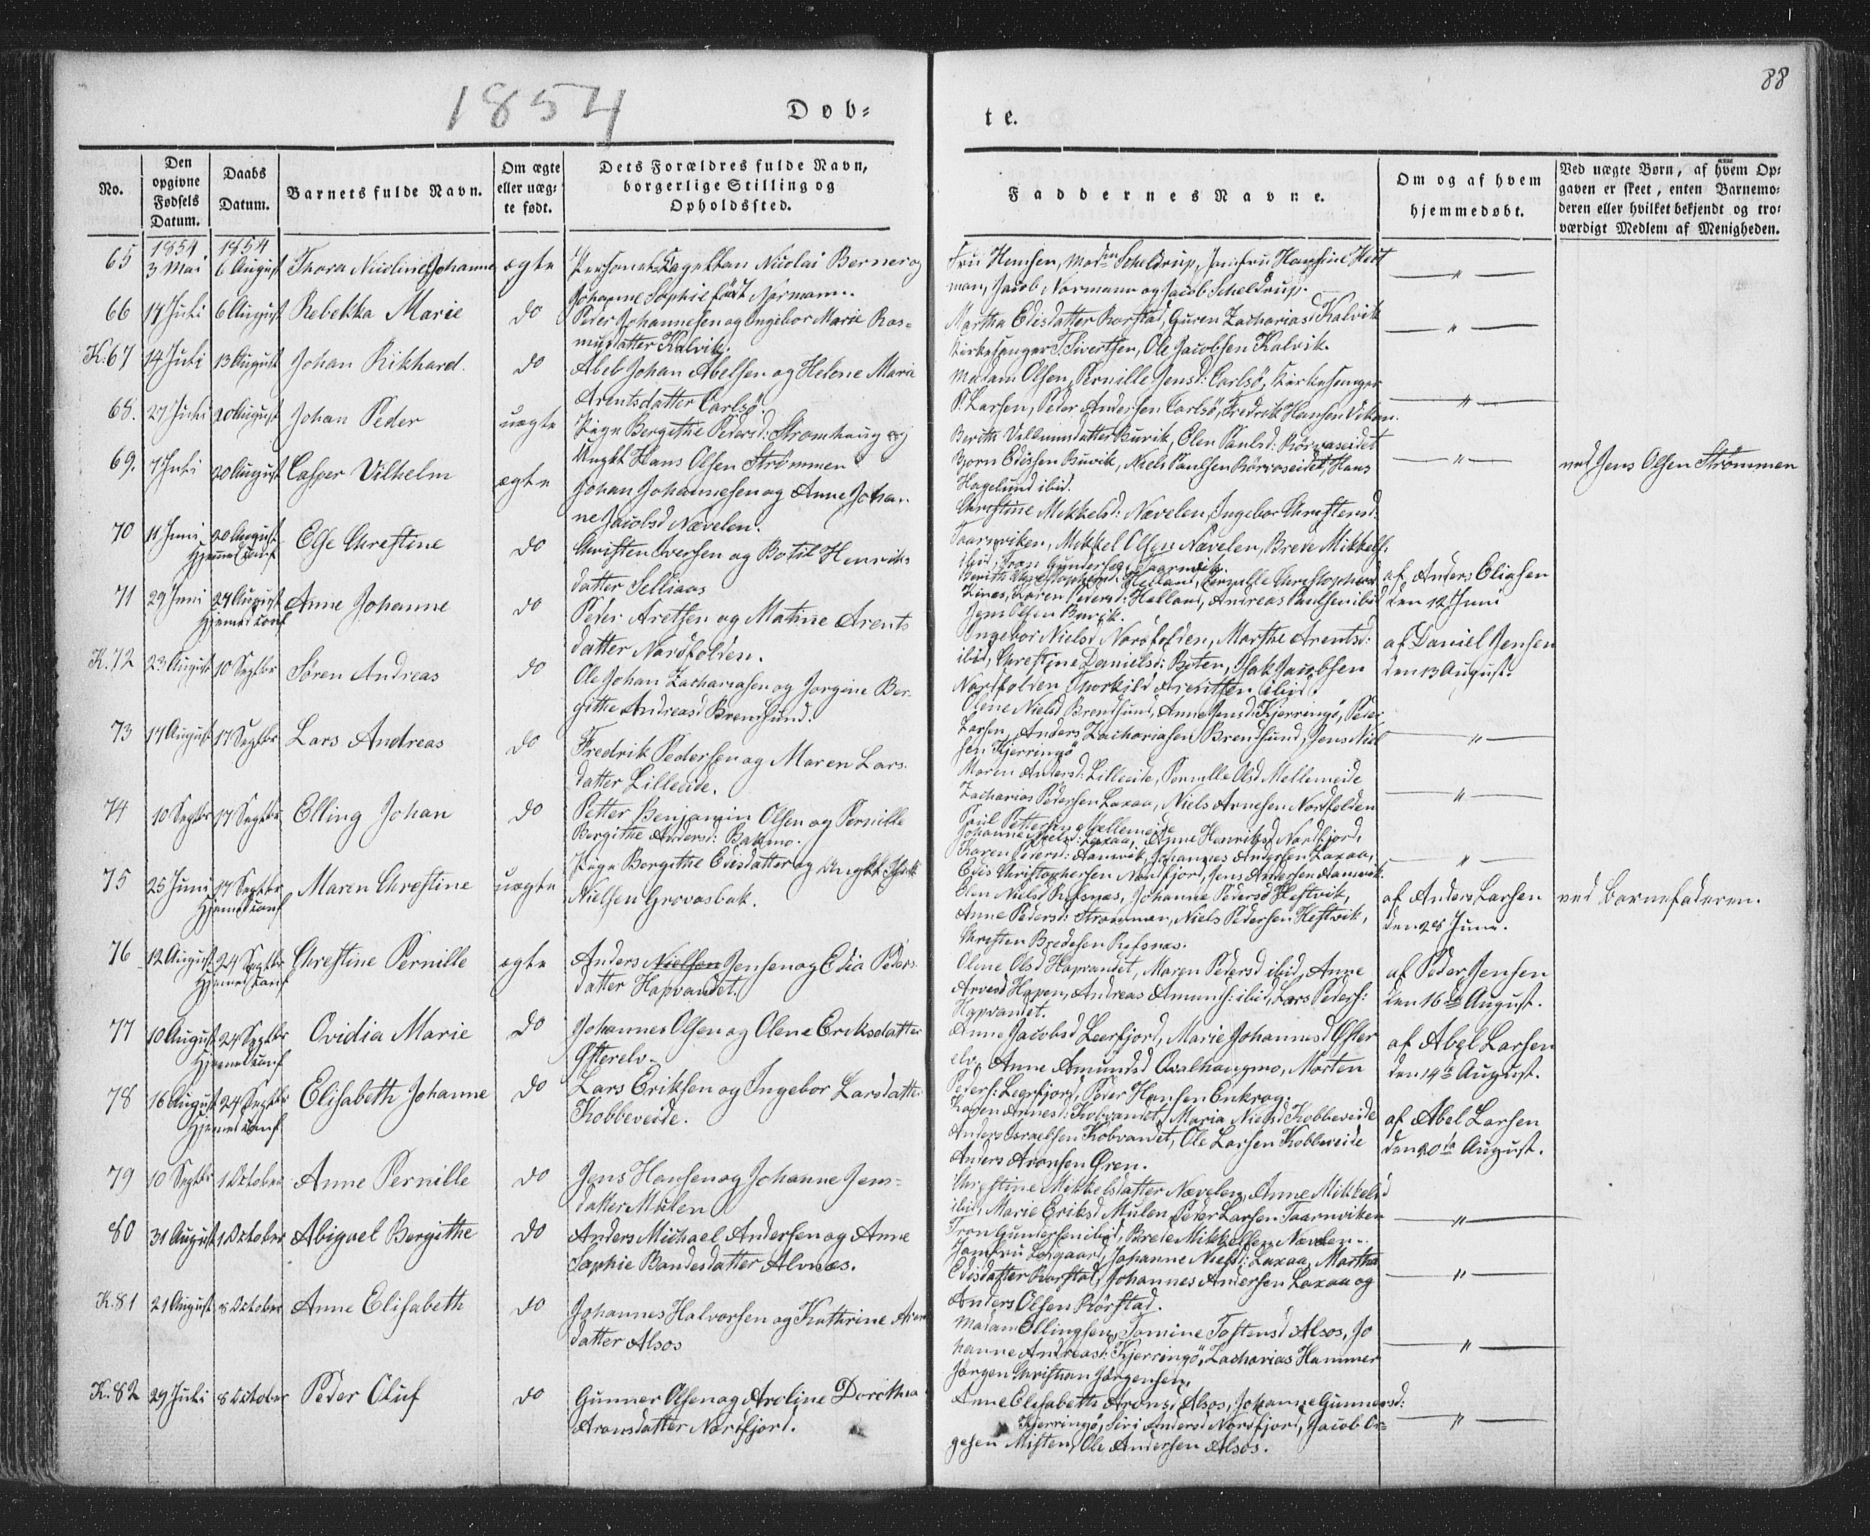 88
1854
Døb-
te.
No.
Den opgivne Fødsels Datum.
Daabs Datum.
Barnets fulde Navn.
Om ægte eller uæg- te født.
Dets Forældres fulde Navn, borgerlige Stilling og Opholdssted.
Faddernes Navne.
Om og af hvem hjemmedøbt.
Ved uægte Børn, af hvem Op- gaven er skeet, enten Barnemo- deren eller hvilket bekjendt og tro- værdigt Medlem af Menigheden.
1854 1854
65 3 Mai 6 August Thora Nicoline Johanne ægte Personel Capellan Nicolai Berner og
Johanne Sophie født Normann.
Fru Hensen, Scheldrup, Jomfru Hansine Heit
man, Jacob Normann og Jacob Scheldrup. — " —
66 17 Juli 6 August Rebekka Marie do Peder Johannesen og Ingebor Marie Ras-
musdatter Kalvik.
Martha Edisdatter Rørstad, Guren Zachariasd Kalvik
Kirkesanger Sivertsen, Ole Jacobsen Kalvik. — " —
K.67 14 Juli 13 August Johan Rikhard. do Abel Johan Abelsen og Helene Maria
Arentsdatter Carlsø.
Madam Olsen, Pernille Jensd: Carlsø, Kirkesanger
P. Larsen, Peder Andersen Carlsø, Fredrik Hansen Viken. — " —
68. 27 Juli 20 August Johan Peder uægte Pige Bergithe Pedersd: Strømhaug og
Ungkl Hans Olsen Strømmen
Berith Villumsdatter Buvik, Elen Paulsd: Rørvaseidet
Bjørn Edissen Buvik, Niels Paulsen Rørvaseidet, Hans
Hagelund ibid. — " — ved Jens Olsen Strømmen
69. 7 Juli 20 August Casper Vilhelm ægte Johan Johannesen og Anne Johan-
ne Jacobsd Nævelen.
Christine Mikkelsd: Nævelen, Ingebor Christensd:
Taarnviken, Mikkel Olsen Nævelen, Brede Mikkels.
ibid, Tron Gundersen Taarnvik.
70 11 Juni 20 August Else Christine do Christen Iversen og Botil Henrik-
Hjemed Conf datter Selliaas
Berith Christophersd: Helland, Pernille Christophersd
Karen Pedersd: Helland, Andreas Paulsen ibid
Jens Olsen Buvik.
af Anders Eliasen
den 12 Juni
71 29 Juni 27 August Anne Johanne do Peder Aretsen og Matine Arents
Hjemed Conf datter Nordfolden.
Ingebor Nielsd Nordfolden, Marthe Arentsd:
ibid, Christine Danielsd: Boten, Isak Jacobsen
Nordfolden, Thorkild Arentsen ibid.
af Daniel Jensen
den 13 August.
K.72 23 August 10 Septbr Søren Andreas do Ole Johan Zachariasen og Jørgine Ber-
githe Andreasd Brendsund.
Olene Nielsd Brendsund, Anne Jensd: Kjerringø, Peder
Larsen, Anders Zachariasen Brendsund, Jens Niel
sen Kjerringø — " —
73 17 August 17 Septbr Lars Andreas do Fredrik Pedersen og Maren Lars-
datter Lilleeide.
Maren Andersd: Lilleeide, Pernille Olsd Mellemeide
Zacharias Pedersen Laxaa, Niels Arnesen Nordfolden
Poul Pettersen Mellemeide — " —
74 10 Septbr 17 Septbr Elling Johan do Petter Benjamin Olsen og Pernille
Bergithe Andersd: Bakmo.
Johanne Nielsd: Laxaa, Anne Henriksd Nordfjord,
Karen Pedersd: Aamvik, Johannes Andersen Laxaa,
Edis Christophersen Nordfjord, Jens Andersen Aamvik — " —
75 25 Juni 17 Septbr Maren Christine uægte Pige Bergithe Edisdatter og Ungkl
Hjemed Conf Nielsen Grovasbak.
Elen Nielsd Refsnes, Johanne Pedersd Heftvik,
Anne Pedersd: Strømmen, Niels Pedersen Heftvik,
Christen Bredesen Refsnæs.
af Anders Larsen
den 28 Juni. ved Barnefaderen.
76 12 August 24 Septbr Christine Pernille ægte Anders Nielsen Jensen og Edia Peders-
Hjemed Conf datter Hopvandet.
Olene Olsd Hopvandet, Maren Pedersd ibid, Anne
Arnesd Hopen, Andreas Amunds: ibid, Lars Peders:
Hopvandet.
af Peder Jensen
den 16de August.
77 10 August 24 Septbr Ovidia Marie do Johannes Olsen og Olene Eriksdatter
Hjemed Conf Østerelv.
Anne Jacobsd Leerfjord, Marie Johannesd Øster
elv, Anne Amundsd Qvalhougmo, Morten
Peders: Leerfjord, Peder Hansen Enkrog.
af Abel Larsen
den 14de August.
78 16 August 24 Septbr Elisabeth Johanne do Lars Eriksen og Ingebor Larsdatter
Hjemed Conf Kobbeveide.
Karen Arnesd: Kobvandet, Maria Nielsd Kobbeveide
Anders Israelsen Kobvandet, Ole Larsen Kobbeveide
Anders Aronsen Øren.
af Abel Larsen
den 20de August.
79 10 Septbr 1 October Anne Pernille do Jens Hansen og Johanne Jens-
datter Mulen
Christine Mikkelsdatter Nævelen, Anne Mikkelsd
ibid, Marie Eriksd Mulen, Peder Larsen Taarnviken
Tron Gundersen ibid, Brede Mikkelsen Nævelen. — " —
80 31 August 1 October Abiguel Bergithe do Anders Michael Andersen og Anne
Sophie Bandesdatter Alvnæs.
Jomfru Løvgaard, Johanne Nielsd: Laxaa, Martha
Edisdatter Rørstad, Johannes Andersen Laxaa og
Anders Olsen Rørstad. — " —
K.81 21 August 8 October Anne Elisabeth do Johannes Halvorsen og Kathrine Aron
datter Alsos
Madam Ellingsen, Tomine Toftensd Alsos, Jo
hanne Andreasd: Kjerringø, Zacharias Hammer
Jørgen Christian Jørgensen. — " —
K.82 29 Juli 8 October Peder Oluf do Gunner Olsen og Aroline Dorothea
Aronsdatter Nordfjord.
Anne Elisabeth Aronsd Alsos, Johanne Gunnersd:
Kjerringø, Siri Andersd Nordfjord, Jacob Or-
gesen Misten, Ole Andersen Alsos. — " —